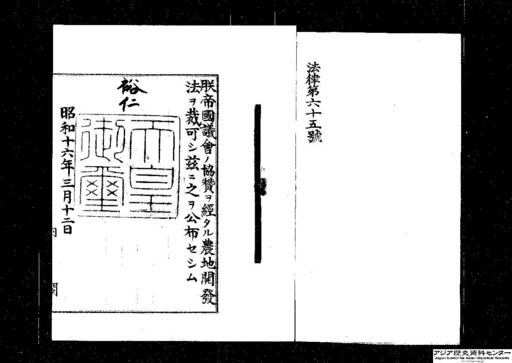 法律第六十五號
朕帝國議會ノ協賛ヲ經タル農地開發
法ヲ裁可シ茲ニ之ヲ公布セシム
裕仁
天皇
御璽
昭和十六年三月十二日
内閣
アジア歴史資料センター
Japan Center for Asian Historical Records